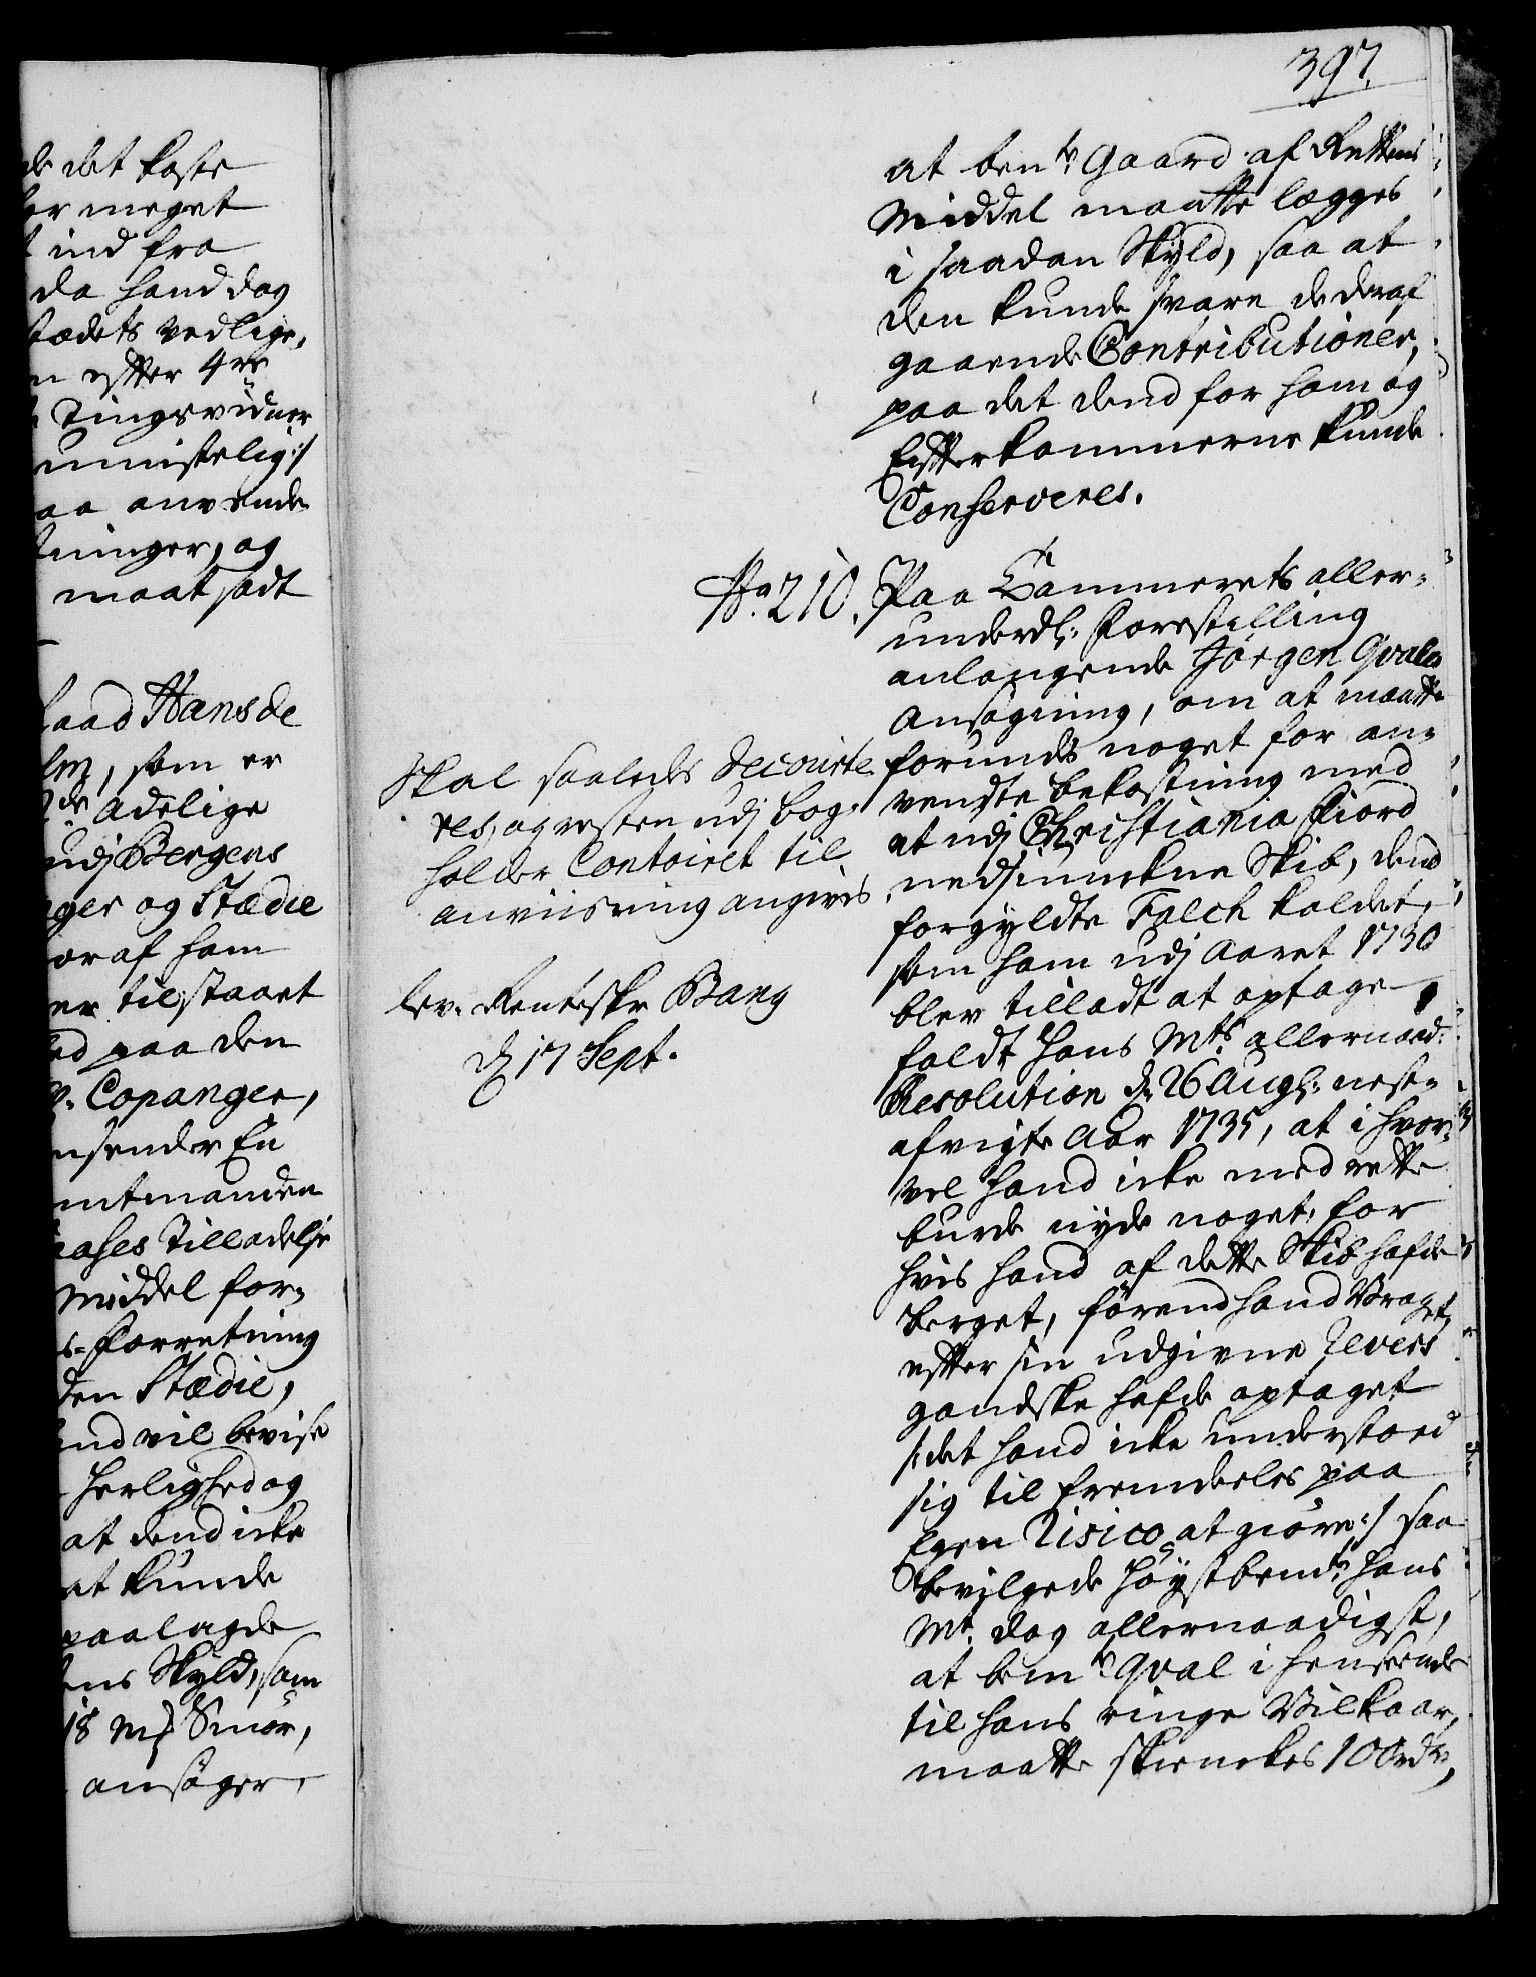 397.
de det koste
or meget
t ind fra
da hand dog
stædets vedlige,
n efter 4re
Tingsvidner
unistelig:/
aa anvende
tninger, og
maat sadt
aad Hans de
lm, som er
de Adelige
udj Bergens
ger og Stædie
oraf ham
er tilstaaet
ed paa den
Copanger,
nsender En
mtmanden
ases Tilladelse
Middel for-
s-Forretning
den Stædie,
and vil bevise
Herlighed og
at dend icke
at kunde
paalagde
ens Skyld, som
18 mk Smør,
ansøger,
at bente Gaard af Rettens
Middel maatte lægges
i saadan Skyld, saa at
den kunde svare de deraf
gaaende Contributioner,
paa det dend for ham og
Efterkommerne kunde
Conserveres.
No. 210. Paa Cammerets aller-
underd: Forestilling
anlangende Jørgen Qvales
Ansøgning, om at maatte
forundes noget for an-
vendte bekostning med
at udj Christiania Fiord
nedsunckne Skib, dend
forgyldte Falch kaldet,
som ham udj Aaret 1730
blev tilladt at optage,
faldt Hans Mts allernaad:
Resolution d. 26 Aug: nest-
afvigte Aar 1735, at i hvor-
vel hand icke med rette
burde nyde noget, for
hvis hand af dette Skib hafde
berget, førend hand Vraget,
efter sin udgivne Revers
gandske hafde optaget
/:det hand icke understoed
sig til fremdeeles paa
Egen Risico at giøre:/ saa
bevilgede høystbemte Hans
Mt. dog allernaadigst,
at bemte Qval i henseende
til hans ringe Vilkaar,
maatte skienckes 100 rdr,
Skal saaledes decourte
res, og resten udj bog-
holder Contoiret til
anviisning angives
lev. Renteskr Bang
d 17 Sept.